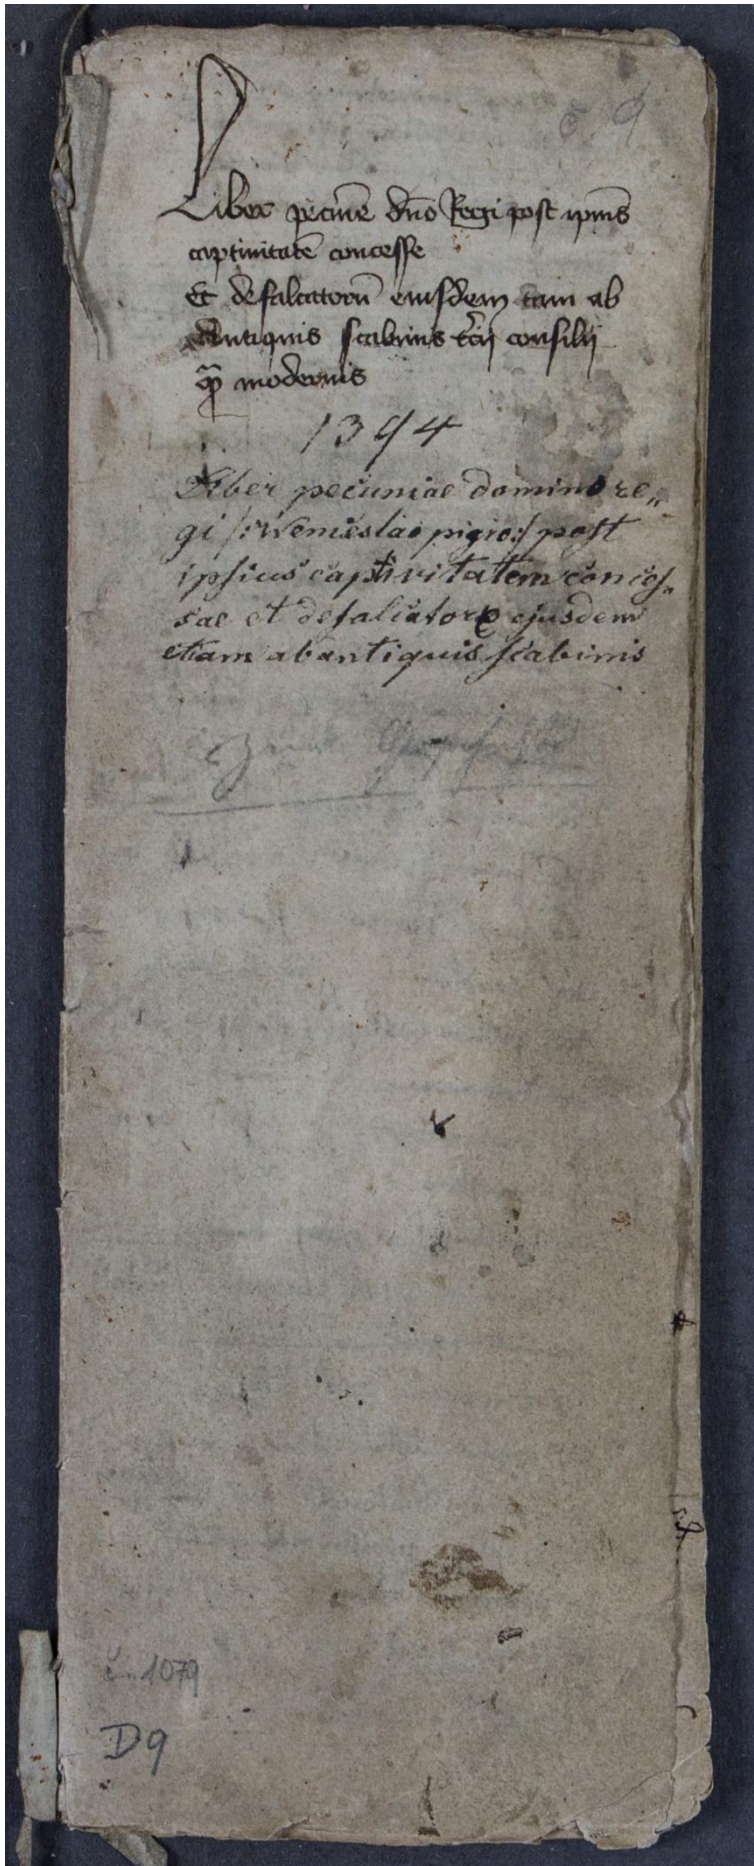 č. 9
Liber pecunie dno Regi post ipius
captiuitate concesse
Et defalcatoru eiusdem tam ab
Antiquis scabinis consilij
qm modernis
1394
Liber pecuniae domino re„
gi /:Wenceslao pigro:/ post
ipsius captivitatem conces„
sae et defalcator ejusdem
etiam ab antiquis scabinis
č. 1079
D9